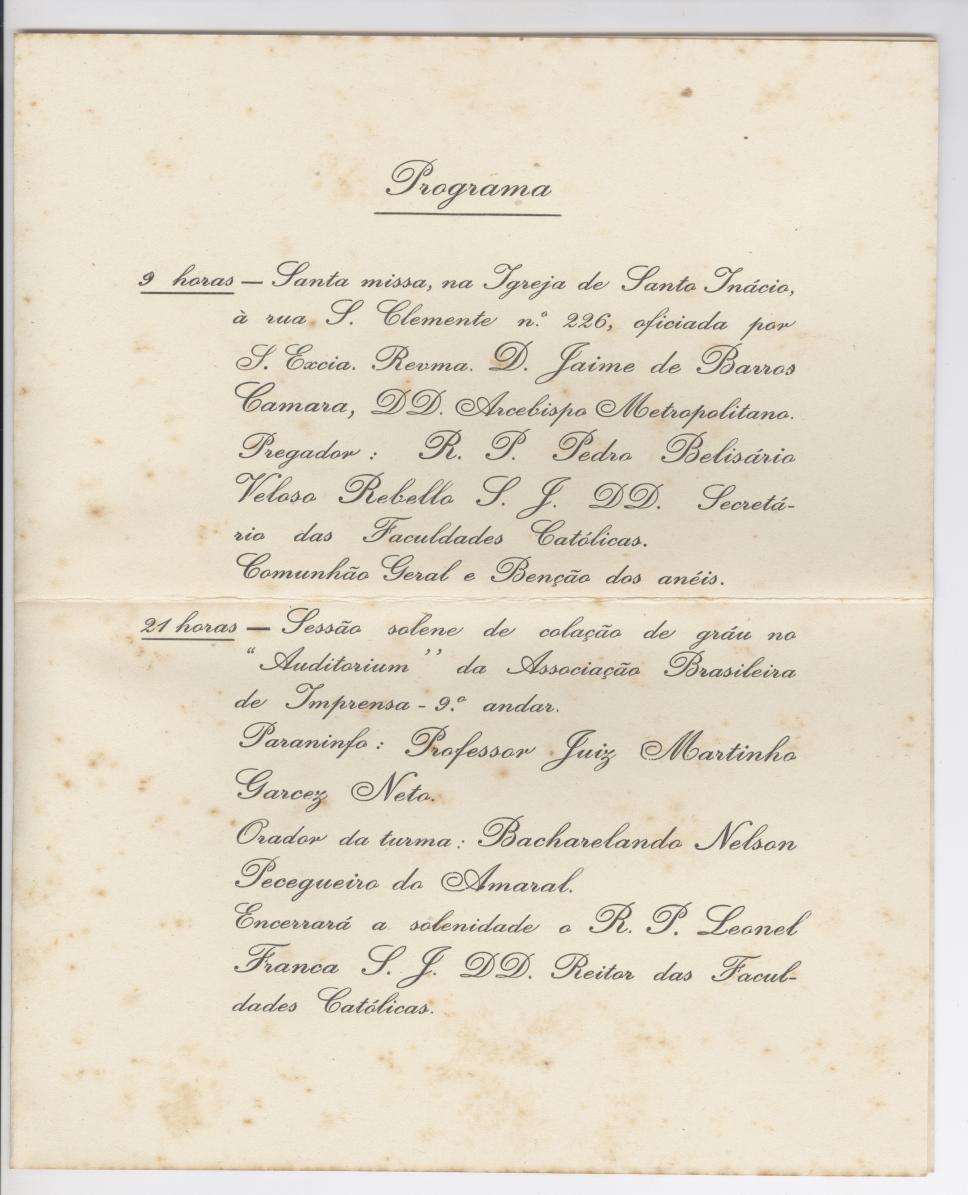 Programa
9 horas — Santa missa, na Igreja de Santo Inácio,
à rua S. Clemente n.º 226, oficiada por
S. Excia. Revma. D. Jaime de Barros
Camara, DD. Arcebispo Metropolitano.
Pregador : R. P. Pedro Belisário
Veloso Rebello S. J. DD. Secretá-
rio das Faculdades Católicas.
Comunhão Geral e Benção dos anéis.
21 horas — Sessão solene de colação de gráu no
“Auditorium” da Associação Brasileira
de Imprensa - 9.º andar.
Paraninfo : Professor Juiz Martinho
Garcez Neto.
Orador da turma : Bacharelando Nelson
Pecegueiro do Amaral.
Encerrará a solenidade o R. P. Leonel
Franca S. J. DD. Reitor das Facul-
dades Católicas.